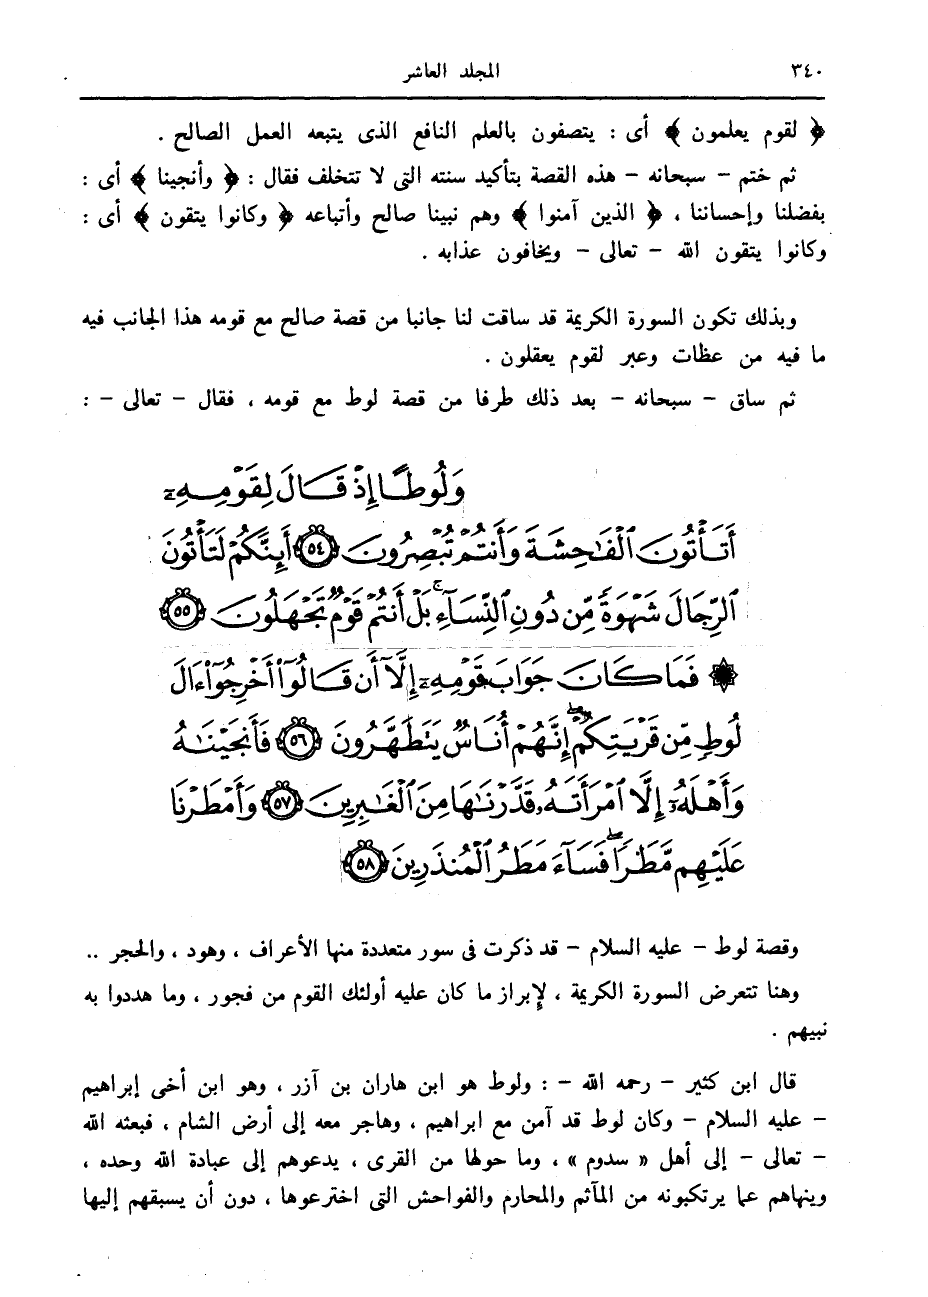 ٣٤٠ المجلد العاشر
﴿ لقوم يعلمون ﴾ أى : يتصفون بالعلم النافع الذى يتبعه العمل الصالح .
ثم ختم – سبحانه – هذه القصة بتأكيد سنته التى لا تتخلف فقال : ﴿ وأنجينا ﴾ أى :
بفضلنا وإحساننا ، ﴿ الذين آمنوا ﴾ وهم نبينا صالح وأتباعه ﴿ وكانوا يتقون ﴾ أى :
وكانوا يتقون الله – تعالى – ويخافون عذابه .
وبذلك تكون السورة الكريمة قد ساقت لنا جانبا من قصة صالح مع قومه هذا الجانب فيه
ما فيه من عظات وعبر لقوم يعقلون .
ثم ساق – سبحانه – بعد ذلك طرفا من قصة لوط مع قومه ، فقال – تعالى – :
وَلُوطًا إِذْ قَالَ لِقَوْمِهِۦٓ
أَتَأْتُونَ ٱلْفَٰحِشَةَ وَأَنتُمْ تُبْصِرُونَ ٥٤ أَئِنَّكُمْ لَتَأْتُونَ
ٱلرِّجَالَ شَهْوَةً مِّن دُونِ ٱلنِّسَآءِ ۚ بَلْ أَنتُمْ قَوْمٌ تَجْهَلُونَ ٥٥
۞ فَمَا كَانَ جَوَابَ قَوْمِهِۦٓ إِلَّآ أَن قَالُوٓا۟ أَخْرِجُوٓا۟ ءَالَ
لُوطٍ مِّن قَرْيَتِكُمْ ۖ إِنَّهُمْ أُنَاسٌ يَتَطَهَّرُونَ ٥٦ فَأَنجَيْنَٰهُ
وَأَهْلَهُۥٓ إِلَّا ٱمْرَأَتَهُۥ قَدَّرْنَٰهَا مِنَ ٱلْغَٰبِرِينَ ٥٧ وَأَمْطَرْنَا
عَلَيْهِم مَّطَرًا ۖ فَسَآءَ مَطَرُ ٱلْمُنذَرِينَ ٥٨
وقصة لوط – عليه السلام – قد ذكرت فى سور متعددة منها الأعراف ، وهود ، والحجر ..
وهنا تتعرض السورة الكريمة ، لإبراز ما كان عليه أولئك القوم من فجور ، وما هددوا به
نبيهم .
قال ابن كثير – رحمه الله – : ولوط هو ابن هاران بن آزر ، وهو ابن أخى إبراهيم
– عليه السلام – وكان لوط قد آمن مع ابراهيم ، وهاجر معه إلى أرض الشام ، فبعثه الله
– تعالى – إلى أهل « سدوم » ، وما حولها من القرى ، يدعوهم إلى عبادة الله وحده ،
وينهاهم عما يرتكبونه من المآثم والمحارم والفواحش التى اخترعوها ، دون أن يسبقهم إليها